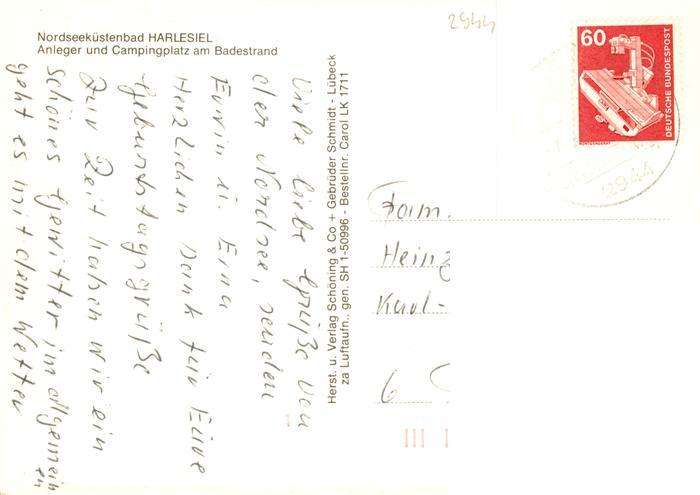 2944
Nordseeküstenbad HARLESIEL
Anleger und Campingplatz am Badestrand
60
DEUTSCHE BUNDESPOST
RÖNTGENGERÄT
2944
Viele liebe Grüße von
der Nordsee, senden
Erwin u. Erna
Herzlichen Dank für Eure
Geburtstagsgrüße
Zur Zeit haben wir ein
schönes Gewitter im allgemein
en
geht es mit dem Wetter
Herst. u. Verlag Schöning & Co + Gebrüder Schmidt - Lübeck
za Luftaufn., gen. SH 1-50996 - Bestellnr. Carol LK 1711
Fam.
Heinz
Karl-
6